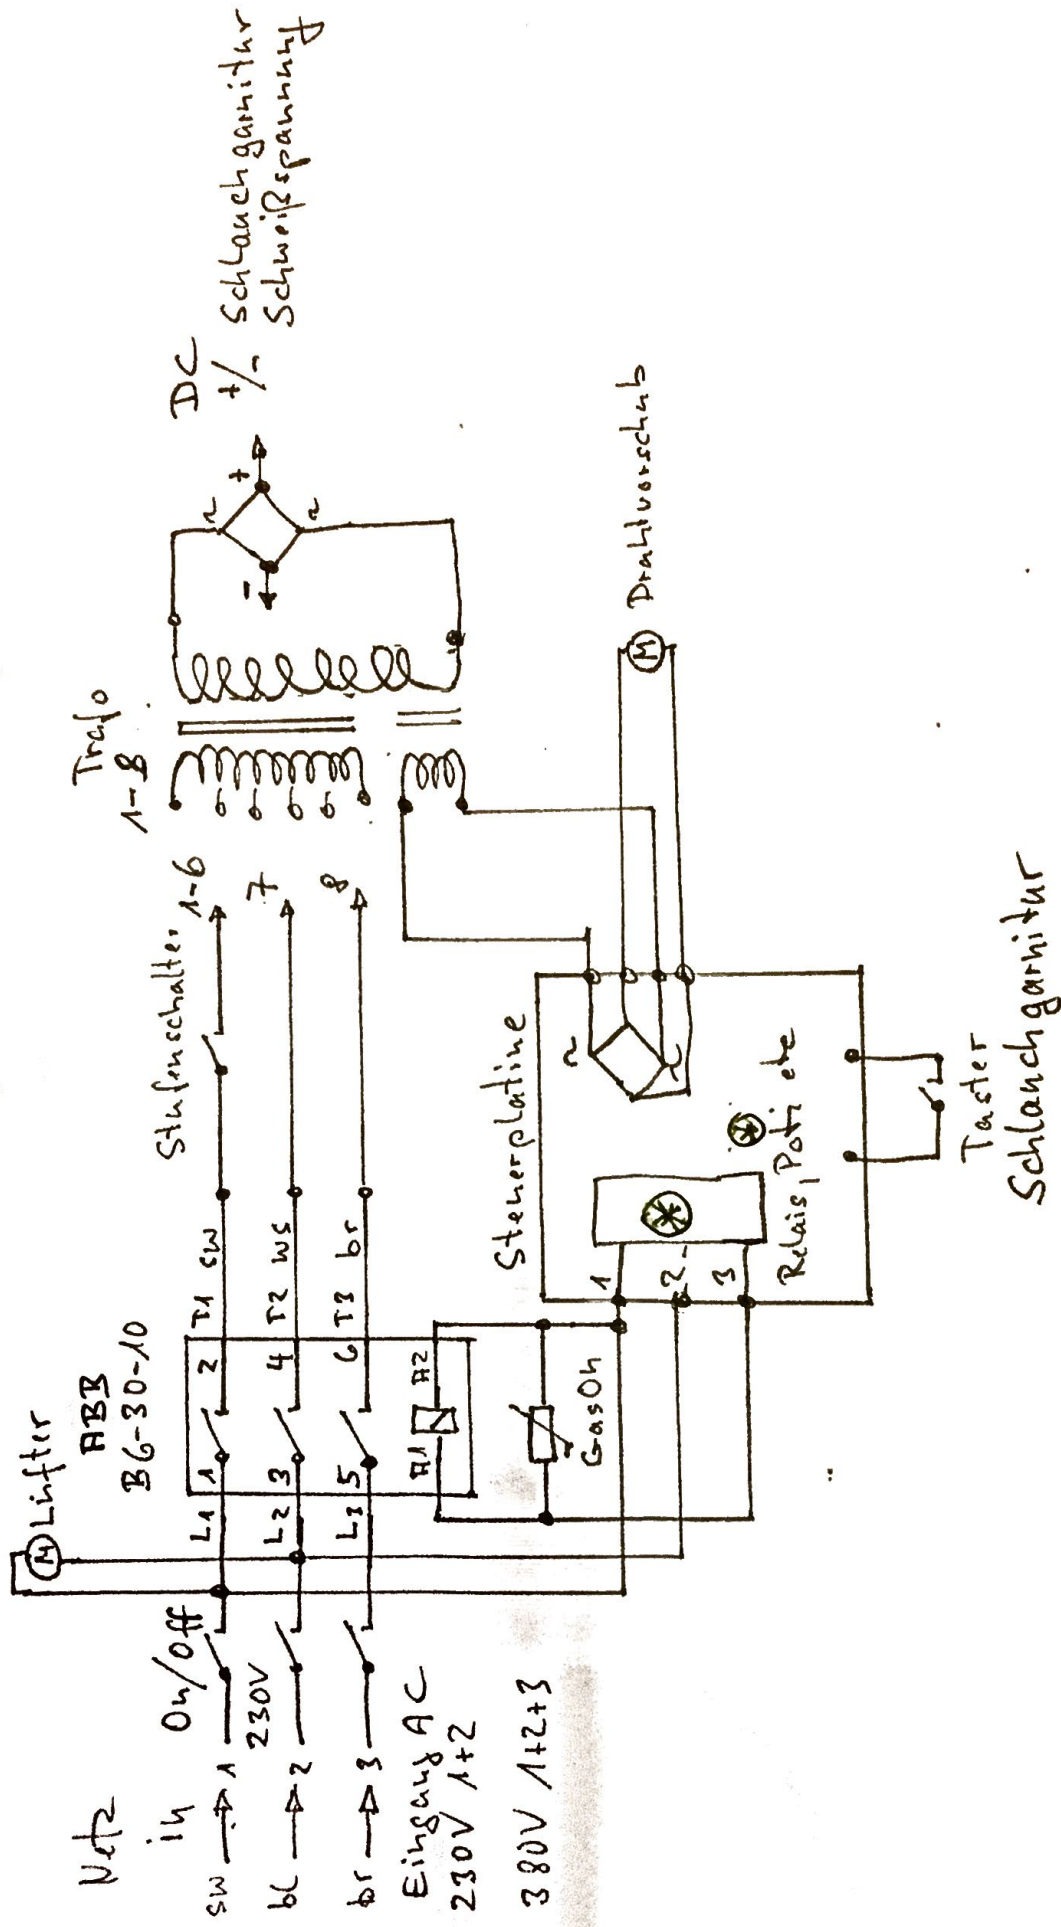 Netz
in
sw
1
bl
2
br
3
On/Off
230V
Eingang AC
230V 1+2
380V 1+2+3
Lüfter
ABB
B6-30-10
L1 1
2 T1 sw
L2 3
4 T2 ws
L3 5
6 T3 br
A1
A2
GasOn
Stufenschalter
1-6
7
8
Trafo
1-8
M
DC
+/-
Schlauchgarnitur
Schweißspannung
~
~
+
-
Steuerplatine
1
2
3
~
~
Relais, Poti etc
M
Drahtvorschub
Taster
Schlauchgarnitur